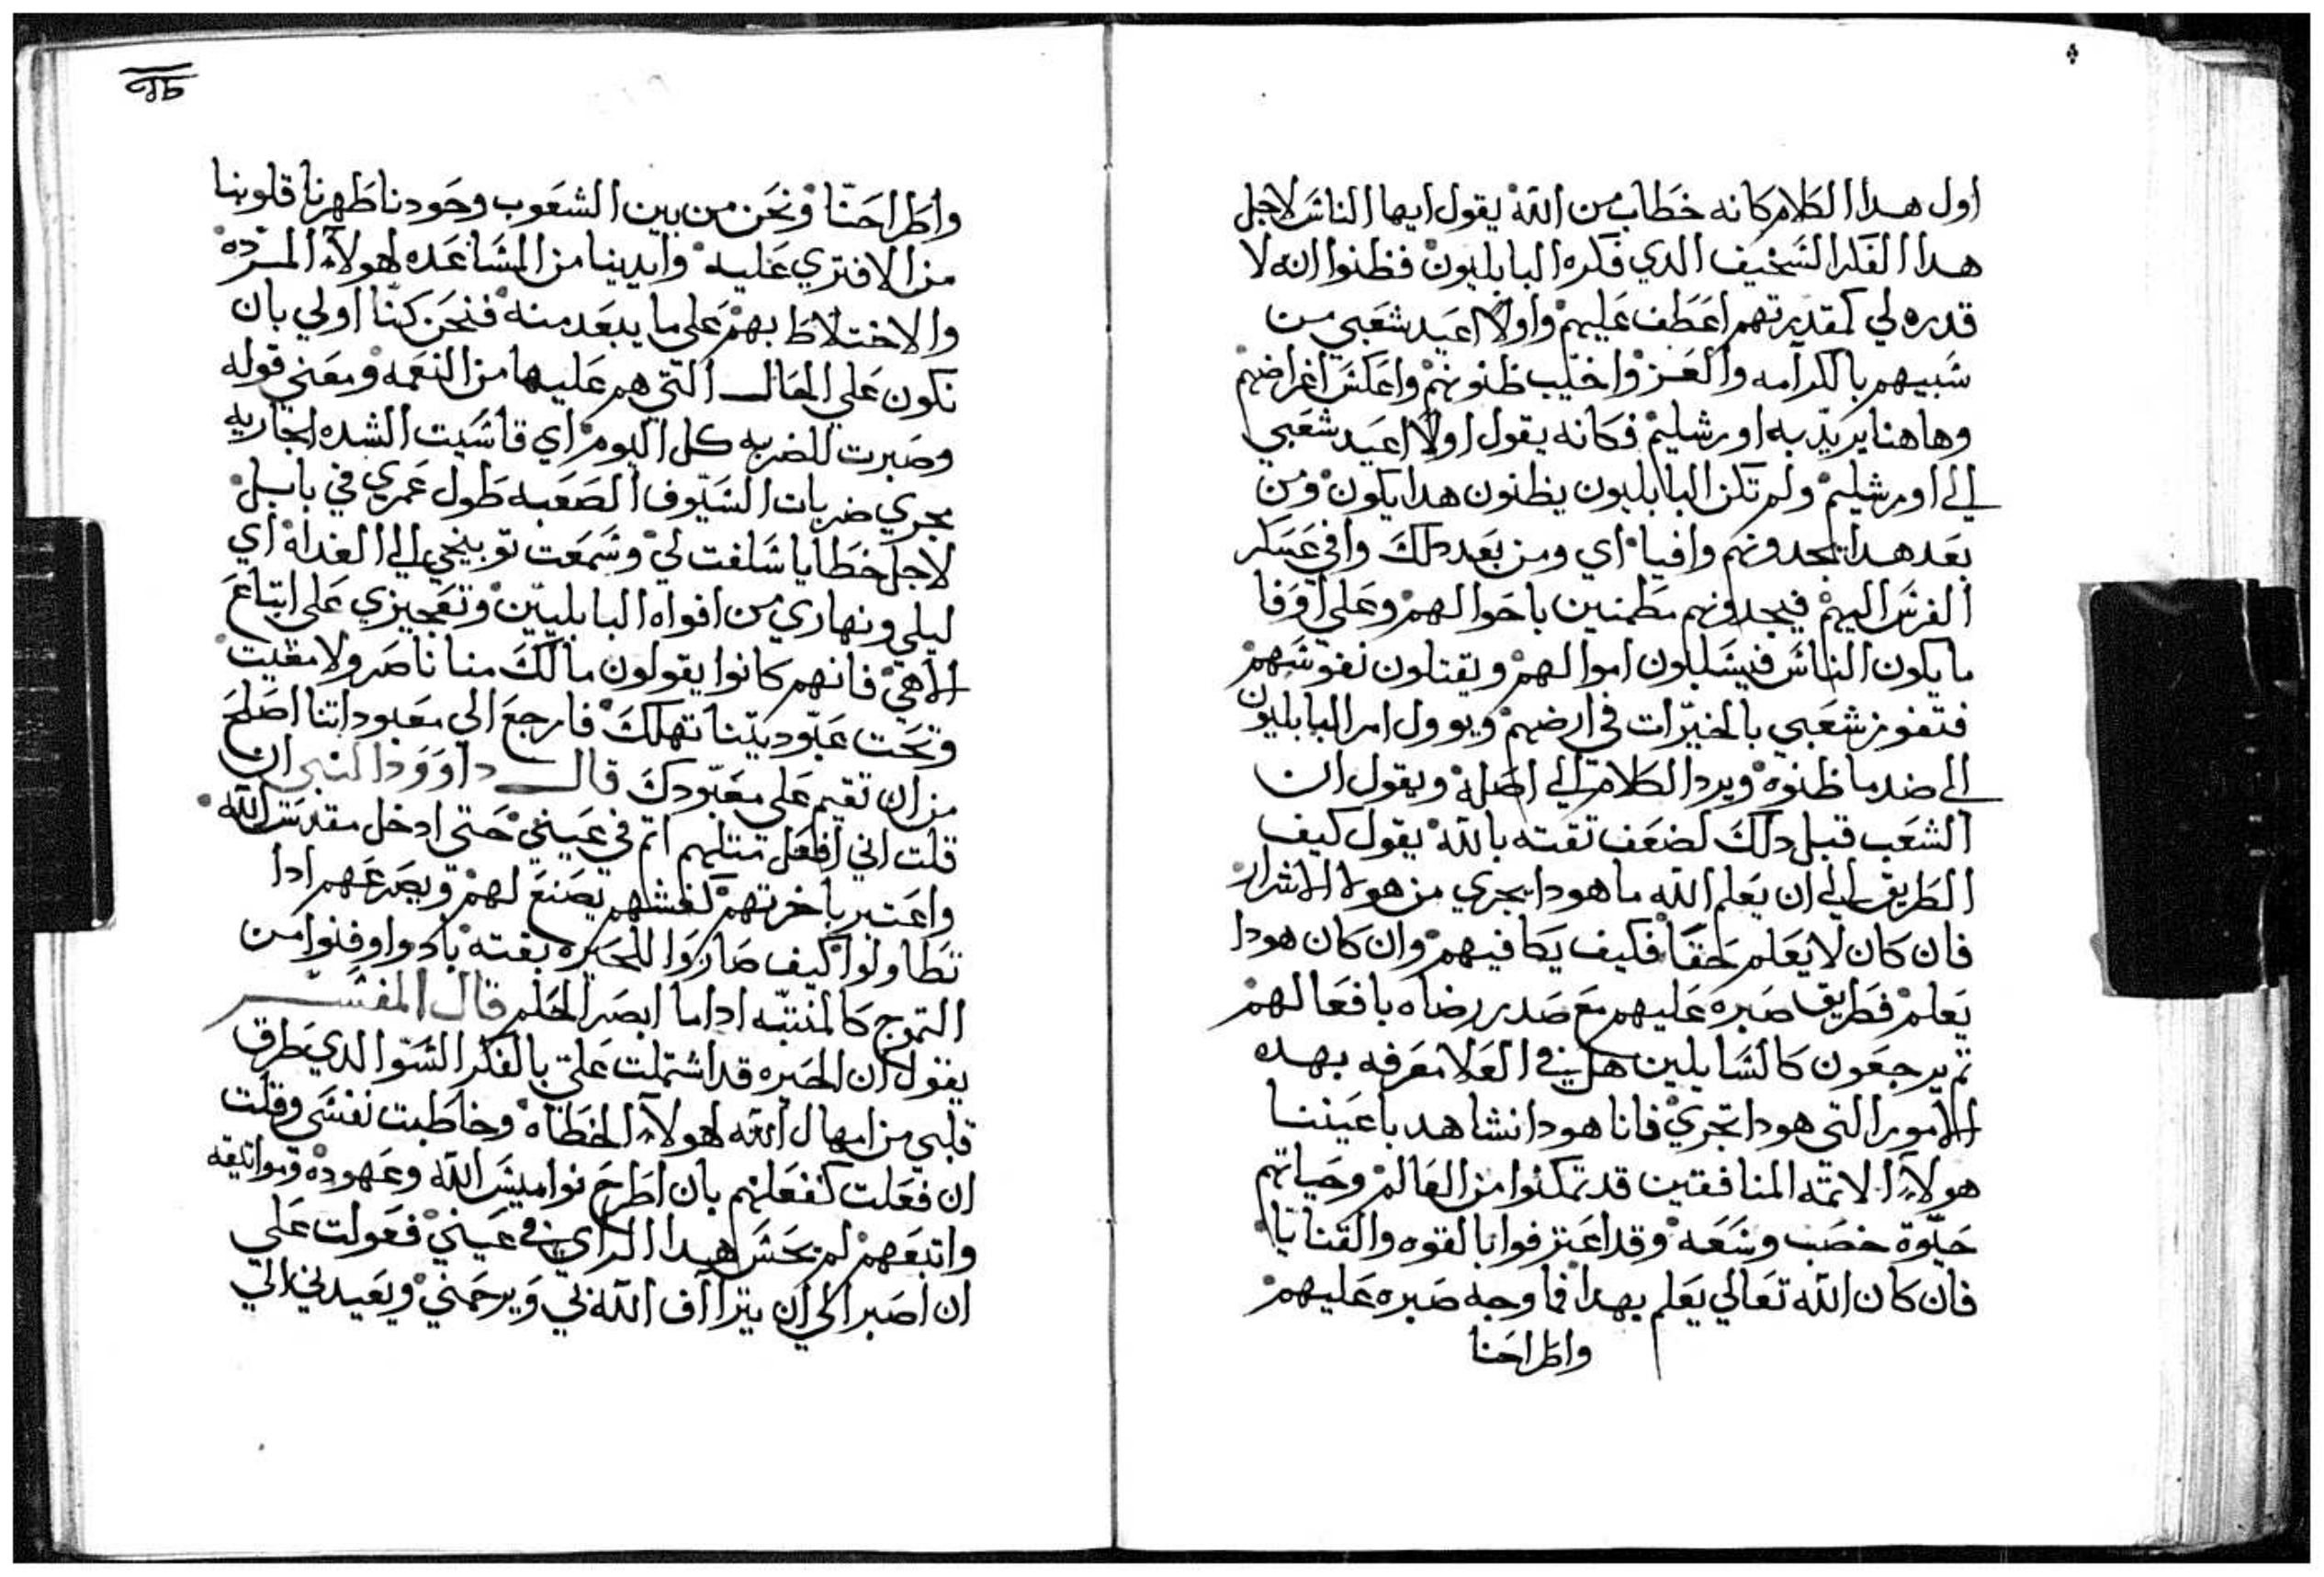 اول هدا الكلام كانه خطاب من الله يقول ايها الناس لاجل
هدا الفكر السخيف الدي فكره البابليون فظنوا انه لا
قدره لي كمقدرتهم اعطف عليهم واولا اعيد شعبي من
سبيهم بالكرامه والعز واخيب ظنونهم واعكس اغراضهم
وهاهنا يريد به اورشليم فكانه يقول اولا اعيد شعبي
الي اورشليم ولم تكن البابليون يظنون هدا يكون ومن
بعد هدا تجدونهم وافيا اي ومن بعد دلك وافي عسكر
الفرس اليهم فيجدونهم مطمنين باحوالهم وعلي اوفا
ما يكون الناس فيسلبون اموالهم ويقتلون نفوسهم
فتفوز شعبي بالخيرات في ارضهم ويوول امر البابليون
الي ضد ما ظنوه ويرد الكلام الي اصله ويقول ان
الشعب قبل دلك لضعف تقته بالله يقول كيف
الطريق الي ان يعلم الله ما هودا يجري من هولا الاشرار
فان كان لا يعلم حقا فكيف يكافيهم وان كان هودا
يعلم فطريق صبره عليهم مع صدر رضاه بافعالهم
تم يرجعون كالسايلين هل في العلا معرفه بهده
الامور التي هودا تجري فانا هودا نشاهد باعيننا
هولاء الاتمه المنافقين قد تمكنوا من العالم وحياتهم
حيوة خصب وسعه وقد اعتزفوا بالقوه والقنايا
فان كان الله تعالي يعلم بهدا فما وجه صبره عليهم
واطراحنا
واطراحنا ونحن من بين الشعوب وحودنا طهرنا قلوبنا
من الافتري عليه وايدينا من المساعده لهولاء المرده
والاختلاط بهم علي ما يبعد منه فنحن كنا اولي بان
نكون علي الحال التي هم عليها من النعمه ومعني قوله
وصبرت للضربه كل اليوم اي قاسيت الشده الجاريه
مجري ضربات السيوف الصعبه طول عمري في بابل
لاجل خطايا سلفت لي وسمعت توبيخي الي الغداه اي
ليلي ونهاري من افواه البابليين وتعجيزي علي اتباع
الاهي فانهم كانوا يقولون مالك منا ناصر ولا مغيت
وتحت عبوديتنا تهلك فارجع الي معبوداتنا اصلح
من ان تقيم علي معبودك قال داوود النبي ان
قلت اني افعل متلهم اتم في عيني حتي ادخل مقدس الله
واعتبر باخرتهم كغشهم يصنع لهم ويصرعهم ادا
تطاولوا كيف صاروا للحيره بغته بادوا وفنوا من
التموج كالمنتبه اداما ابصر الحلم قال المفسر
يقول ان الحيره قد اشتملت علي بالفكر السوا الدي يطرق
قلبي من امهال الله لهولاء الخطاه وخاطبت نفسي وقلت
ان فعلت كفعلهم بان اطرح نواميس الله وعهوده ومواتيقه
واتبعهم لم يحسن هدا الراي في عيني فعولت علي
ان اصبر الي ان يتراآف الله بي ويرحمني ويعيدني الي